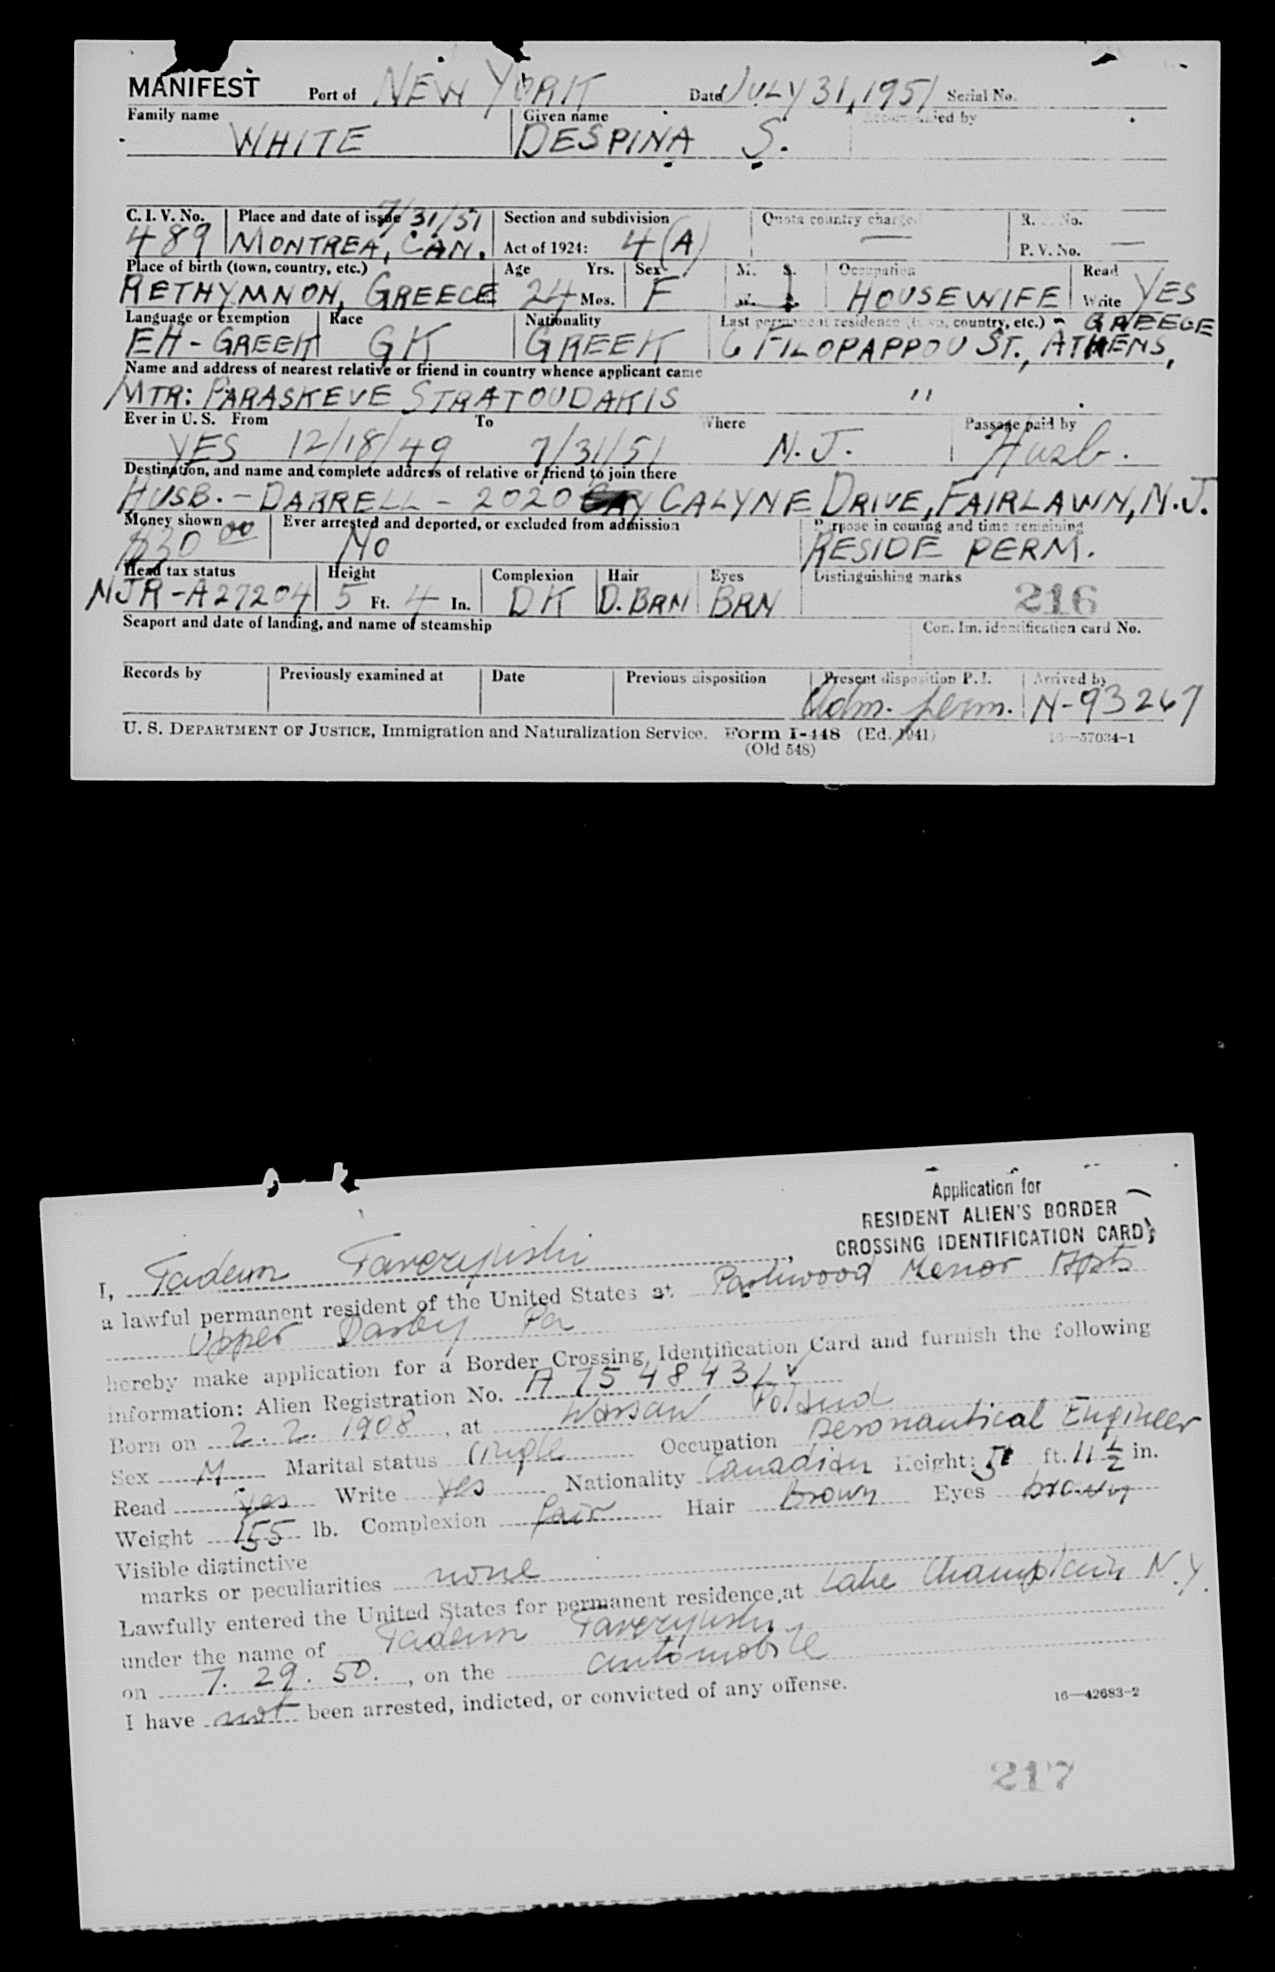 MANIFEST Port of NEW YORK Date JULY 31, 1951 Serial No.
Family name Given name Accompanied by
WHITE DESPINA S.
C. I. V. No. Place and date of issue 7/31/51 Section and subdivision Quota country charged R. No.
489 MONTREA, CAN. Act of 1924: 4(A) — P. V. No. —
Place of birth (town, country, etc.) Age Yrs. Sex M. S. Occupation Read
RETHYMNON, GREECE 24 Mos. F W. HOUSEWIFE Write YES
Language or exemption Race Nationality Last permanent residence (town, country, etc.) - GREECE
EH - GREEK GK GREEK 6 FILOPAPPOU ST., ATHENS,
Name and address of nearest relative or friend in country whence applicant came
MTR: PARASKEVE STRATOUDAKIS "
Ever in U. S. From To Where Passage paid by
YES 12/18/49 7/31/51 N. J. Husb.
Destination, and name and complete address of relative or friend to join there
HUSB. - DARRELL - 2020 CALYNE DRIVE, FAIRLAWN, N.J.
Money shown Ever arrested and deported, or excluded from admission Purpose in coming and time remaining
$30 00 No RESIDE PERM.
Head tax status Height Complexion Hair Eyes Distinguishing marks
NJR-A27204 5 Ft. 4 In. DK D. BRN BRN 216
Seaport and date of landing, and name of steamship Con. Im. identification card No.
Records by Previously examined at Date Previous disposition Present disposition P. I. Arrived by
Adm. perm. N-93267
U. S. DEPARTMENT OF JUSTICE, Immigration and Naturalization Service. Form I-448 (Ed. 1941) 16—57034-1
(Old 548)
Application for
RESIDENT ALIEN'S BORDER
CROSSING IDENTIFICATION CARD
I,
a lawful permanent resident of the United States at Parkwood Manor Apts
Upper Darby Pa
hereby make application for a Border Crossing Identification Card and furnish the following
information: Alien Registration No. A 7548431 ✓
Born on 2. 2. 1908, at Warsaw Poland
Sex M Marital status single Occupation Aeronautical Engineer
Read yes Write yes Nationality Canadian Height: 5 ft. 11 1/2 in.
Weight 155 lb. Complexion fair Hair Brown Eyes brown
Visible distinctive
marks or peculiarities none
Lawfully entered the United States for permanent residence at Lake Champlain N.Y.
under the name of
on 7. 29. 50., on the automobile
I have not been arrested, indicted, or convicted of any offense.
16—42683-2
217